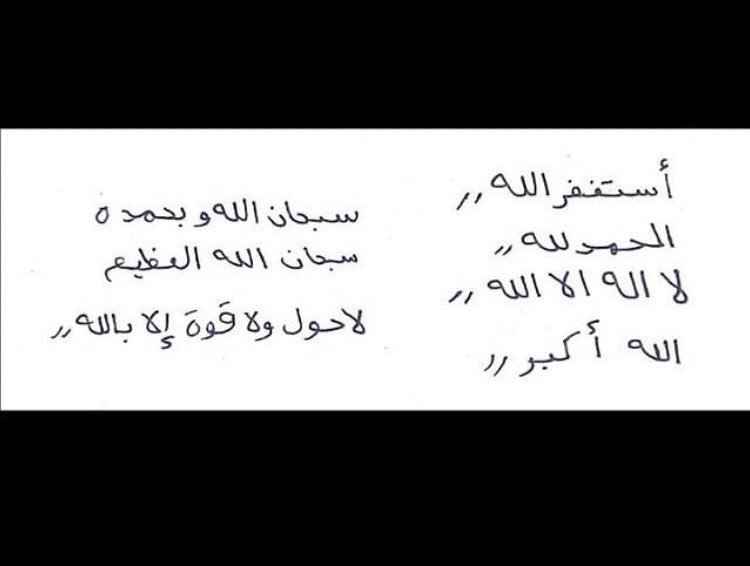 أستغفر الله,,
الحمدلله,,
لا اله الا الله,,
الله أكبر,,
سبحان الله وبحمده
سبحان الله العظيم
لاحول ولا قوة إلا بالله,,